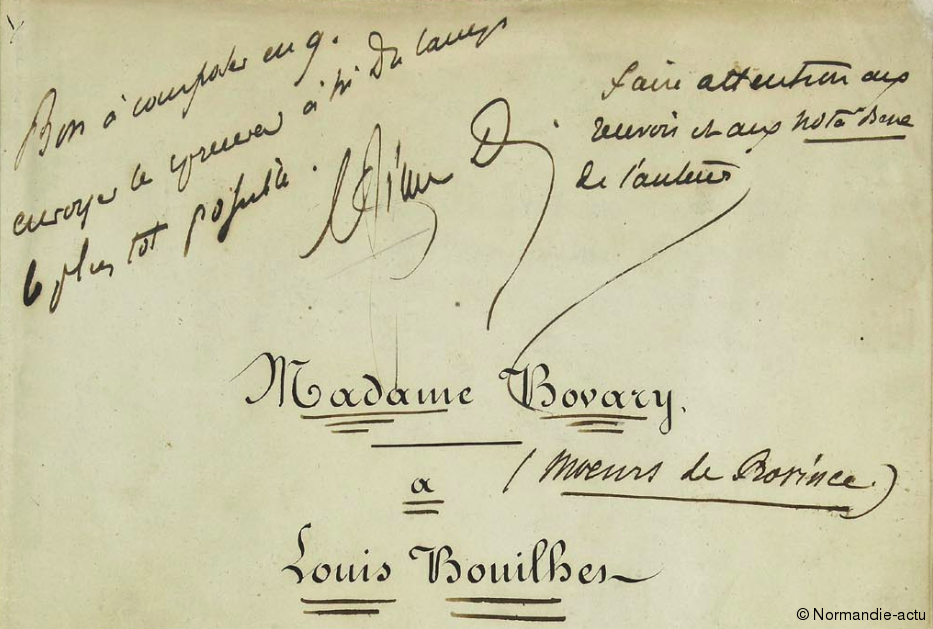 Bon à composer en 9.
envoyer les épreuves à Mr Du Camp
le plus tot possible.
faire attention aux
renvois et aux nota-Bene
de l'auteur
Madame Bovary.
(Moeurs de Province.)
a
Louis Bouilhet
© Normandie-actu